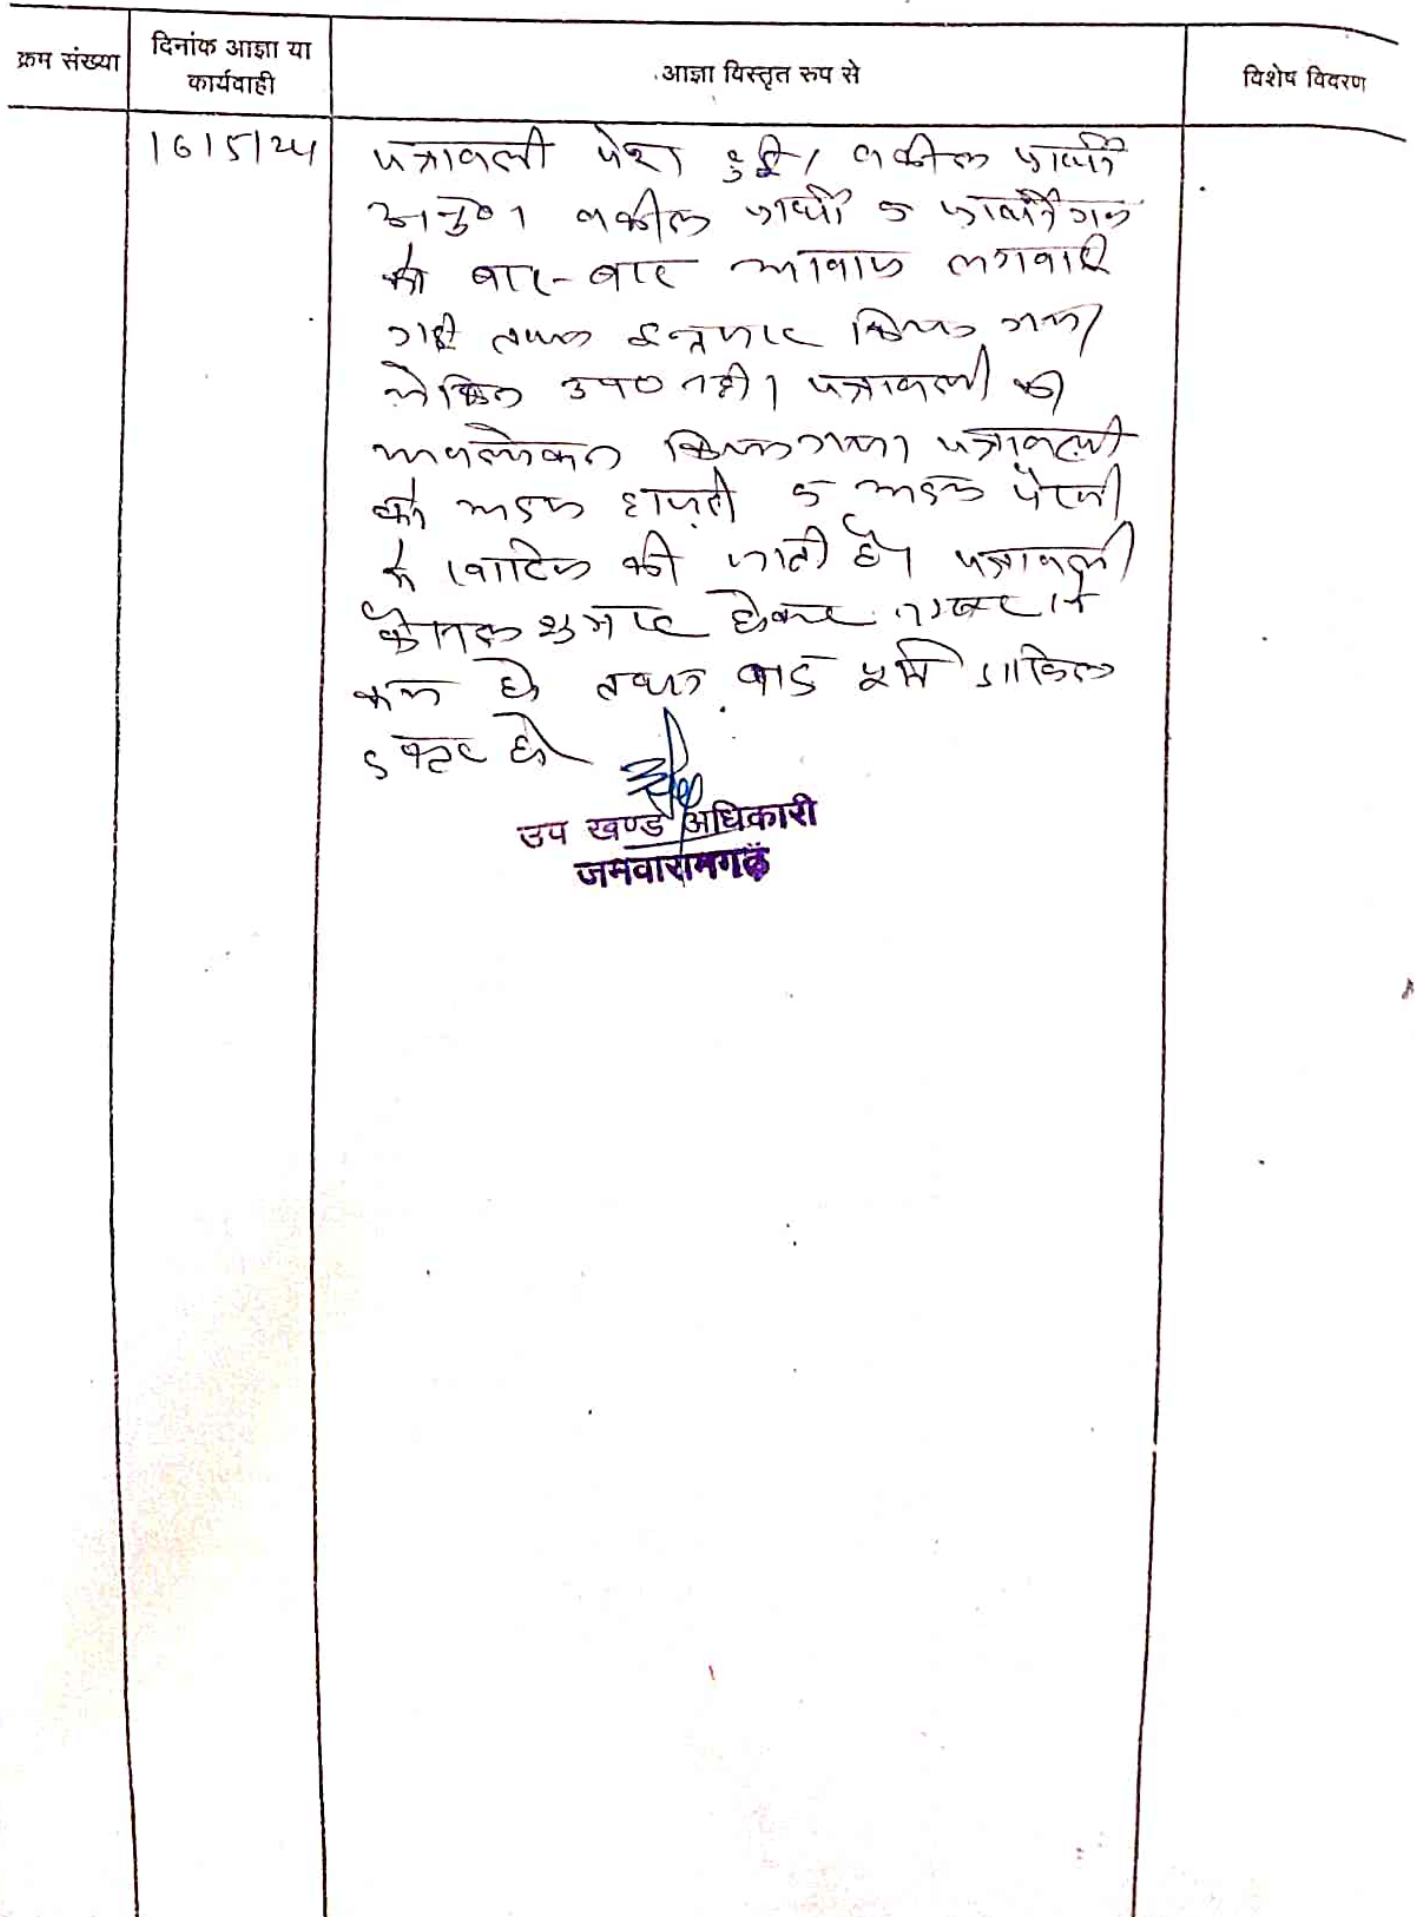 क्रम संख्या
दिनांक आज्ञा या
कार्यवाही
आज्ञा विस्तृत रुप से
विशेष विवरण
16/5/24
पत्रावली पेश हुई। वकील प्रार्थी
अनु०। वकील प्रार्थी व प्रार्थीगण
को बार-बार आवाज लगवाई
गई तथा इन्तजार किया गया
लेकिन उप० नही। पत्रावली का
अवलोकन किया गया। पत्रावली
को अदम हाजरी व अदम पैरवी
में खारिज की जाती है। पत्रावली
फैसल शुमार होकर नम्बर से
कम हो तथा बाद पूर्ति दाखिल
दफ्तर हो
उप खण्ड अधिकारी
जमवारामगढ़